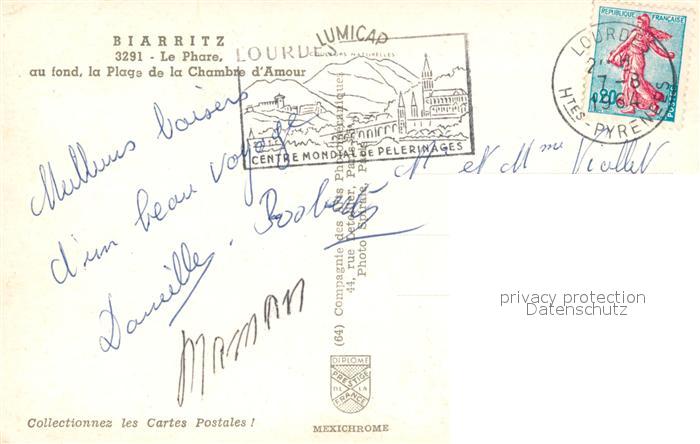 BIARRITZ
3291 - Le Phare,
au fond, la Plage de la Chambre d'Amour
LUMICAP
COULEURS NATURELLES
LOURDES
CENTRE MONDIAL DE PELERINAGES
REPUBLIQUE FRANÇAISE
0,20
POSTES
LOURDES
7-8
1964
HTES PYRENEES
Meilleurs baisers
d'un beau voyage
Danielle. Robert
MAMAN
Mr et Mme Viollet
(64) Compagnie des Arts Photomécaniques
44, rue Letellier, Paris
Photo Spirale, Paris
privacy protection
Datenschutz
DIPLOME
PRESTIGE
DE LA
FRANCE
Collectionnez les Cartes Postales !
MEXICHROME